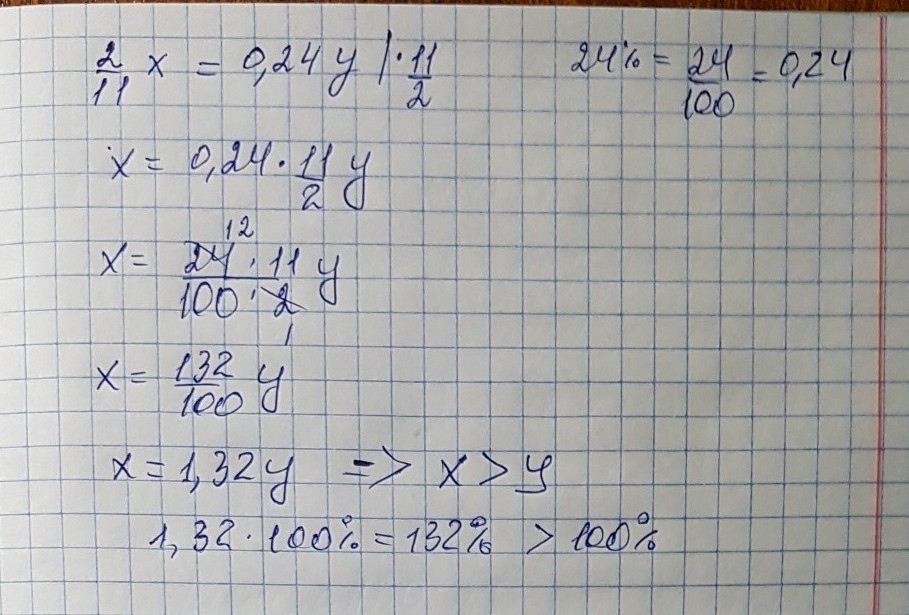 2/11 x = 0,24 y | · 11/2    24% = 24/100 = 0,24
x = 0,24 · 11/2 y
x = 24 12 · 11 / 100 · 2 1 y
x = 132/100 y
x = 1,32 y => x > y
1,32 · 100% = 132% > 100%